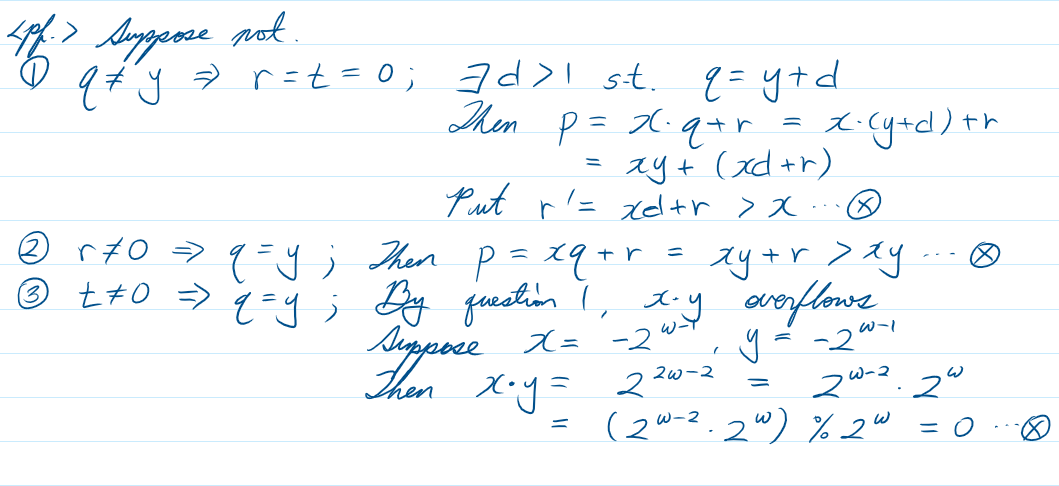 <pf.> Suppose not.
① q ≠ y ⇒ r = t = 0 ; ∃d > 1 s.t. q = y + d
Then p = x · q + r = x · (y + d) + r
= xy + (xd + r)
Put r' = xd + r > x ... ⊗
② r ≠ 0 ⇒ q = y ; Then p = xq + r = xy + r > xy ... ⊗
③ t ≠ 0 ⇒ q = y ; By question 1, x · y overflows
Suppose x = -2^{w-1}, y = -2^{w-1}
Then x · y = 2^{2w-2} = 2^{w-2} · 2^w
= (2^{w-2} · 2^w) % 2^w = 0 ... ⊗